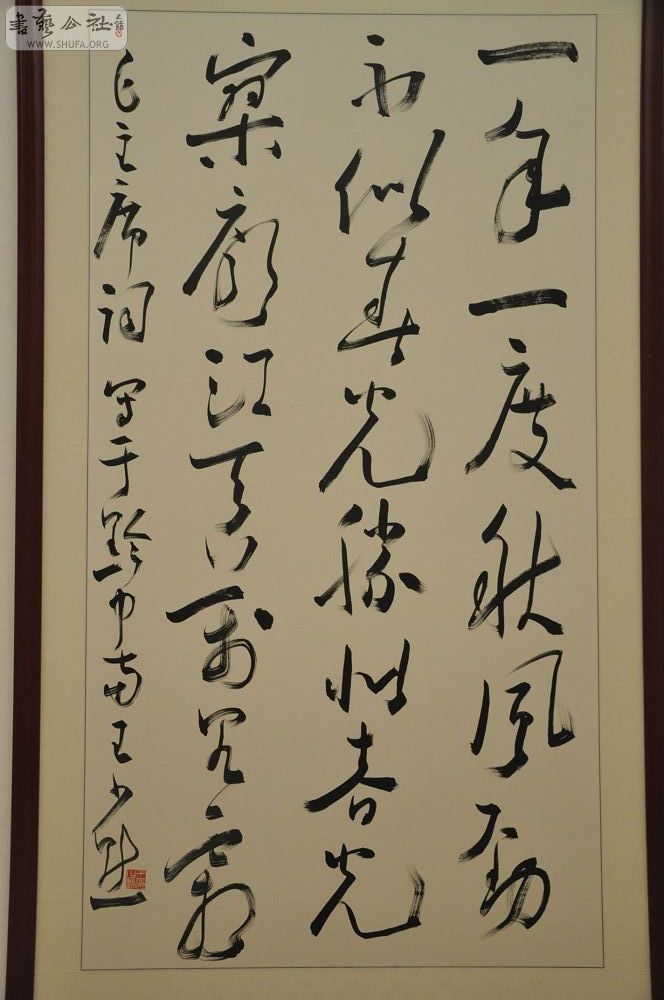 書藝公社
WWW.SHUFA.ORG
一年一度秋風勁
不似春光勝似春光
寥廓江天萬里霜
毛主席词 写于黔中南王